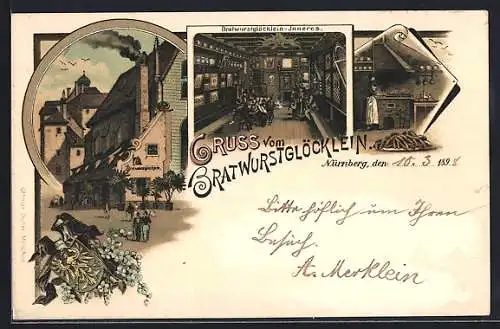 Bratwurstglöcklein-Inneres.
Gruss vom
Bratwurstglöcklein.
Nürnberg, den 16. 3. 189
Bitte höflich um Ihren
Besuch.
A. Merklein